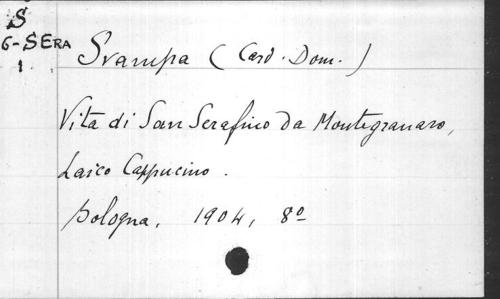 S
G-SERA
1.
Svampa (Card. Dom.)
Vita di San Serafino da Montegranaro,
Laico Cappucino.
Bologna, 1904, 8º